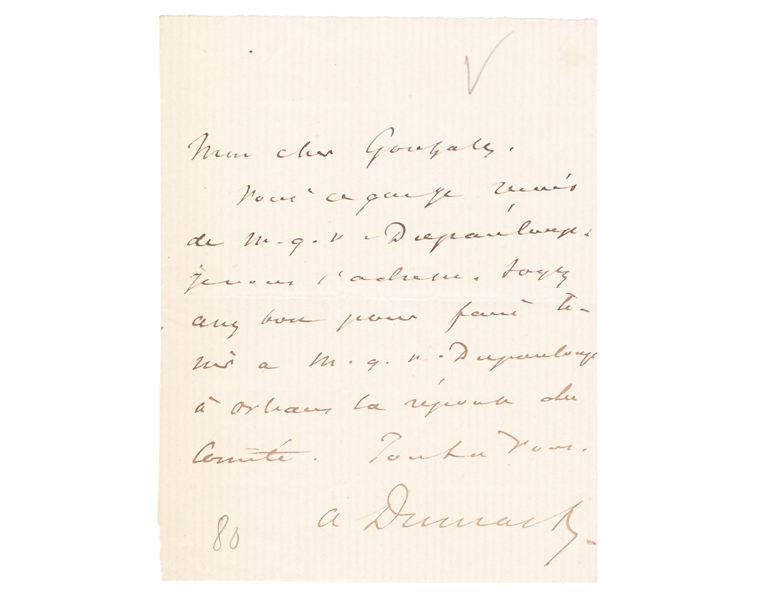 Mon cher Gonzalez.
Voici ce que je reçois
de M.g.r. Dupanloup.
je vous l'adresse. Soyez
assez bon pour faire te-
nir a M.g.r. Dupanloup
à Orleans la réponse du
Comité. Tout a Vous.
A Dumas
80